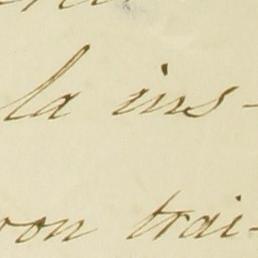 la ins-
von trai-